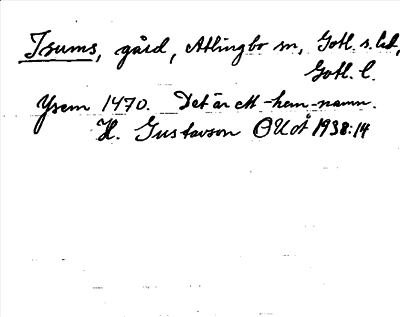 Isums, gård, Atlingbo sn, Gotl. s. hd,
Gotl. l.
Ysem 1470. Det är ett -hem-namn.
H. Gustavson OUoÅ 1938:14